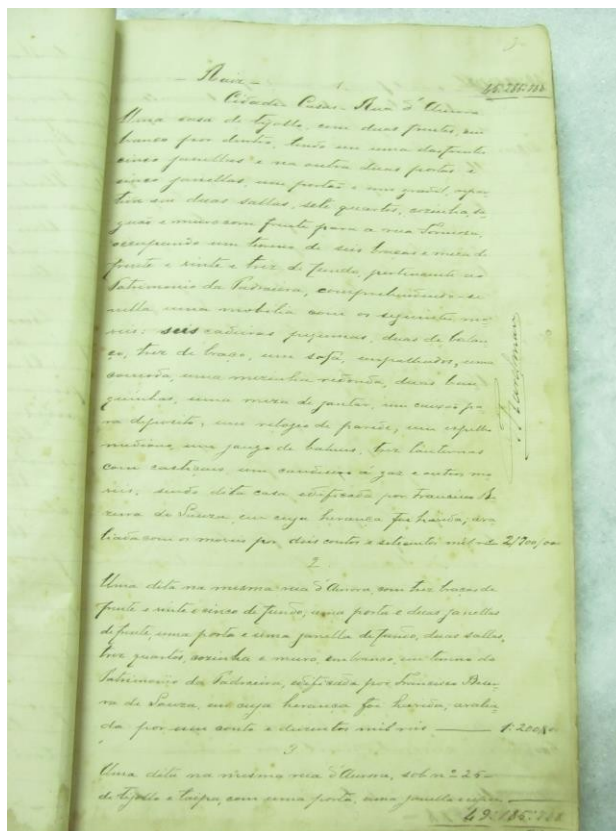 — Raiz —
1
45:285:788
Cidade – Casas – Rua d'Aurora
Uma casa de tijollo, com duas frentes, em
branco por dentro, tendo em uma das frentes
cinco janellas e na outra duas portas e
cinco janellas, um portão e um gradil, repar
tida em duas sallas, sete quartos, cosinha,
e muro com frente para a rua Formosa,
occupando um terreno de seis braças e meia de
frente e vinte e trez de fundo, pertencente ao
Patrimonio da Padroeira, comprehendendo-se
nella, uma mobilia com os seguintes mo
veis: seis cadeiras pequenas, duas de balan
ço, trez de braço, um sofá, empalhados, uma
comoda, uma mezinha redonda, duas ban
quinhas, uma meza de jantar, um caixão pa
ra deposito, um relogio de parede, um espelho
mediano, um jango de bahus, trez lanternas
com castiçaes, um candieiro á gaz e outros mo
veis; sendo dita casa edificada por Francisco Be
zerra de Souza, em cuja herança foi havida, ava
liada com os moveis por dois contos e setecentos mil reis 2:700,000
2
Uma dita na mesma rua d'Aurora, com trez braças de
frente e vinte e cinco de fundo, uma porta e duas janellas
de frente, uma porta e uma janella de fundo, duas sallas,
trez quartos, cosinha e muro, em branco, em terreno do
Patrimonio da Padroeira, edificada por Francisco Bezer-
ra de Souza, em cuja herança foi havida, avalia
da por um conto e duzentos mil reis — 1:200,000
3
Uma dita na mesma rua d'Aurora, sob nº 225 –
de tijollo e taipa, com uma porta, uma janella
49:185:788